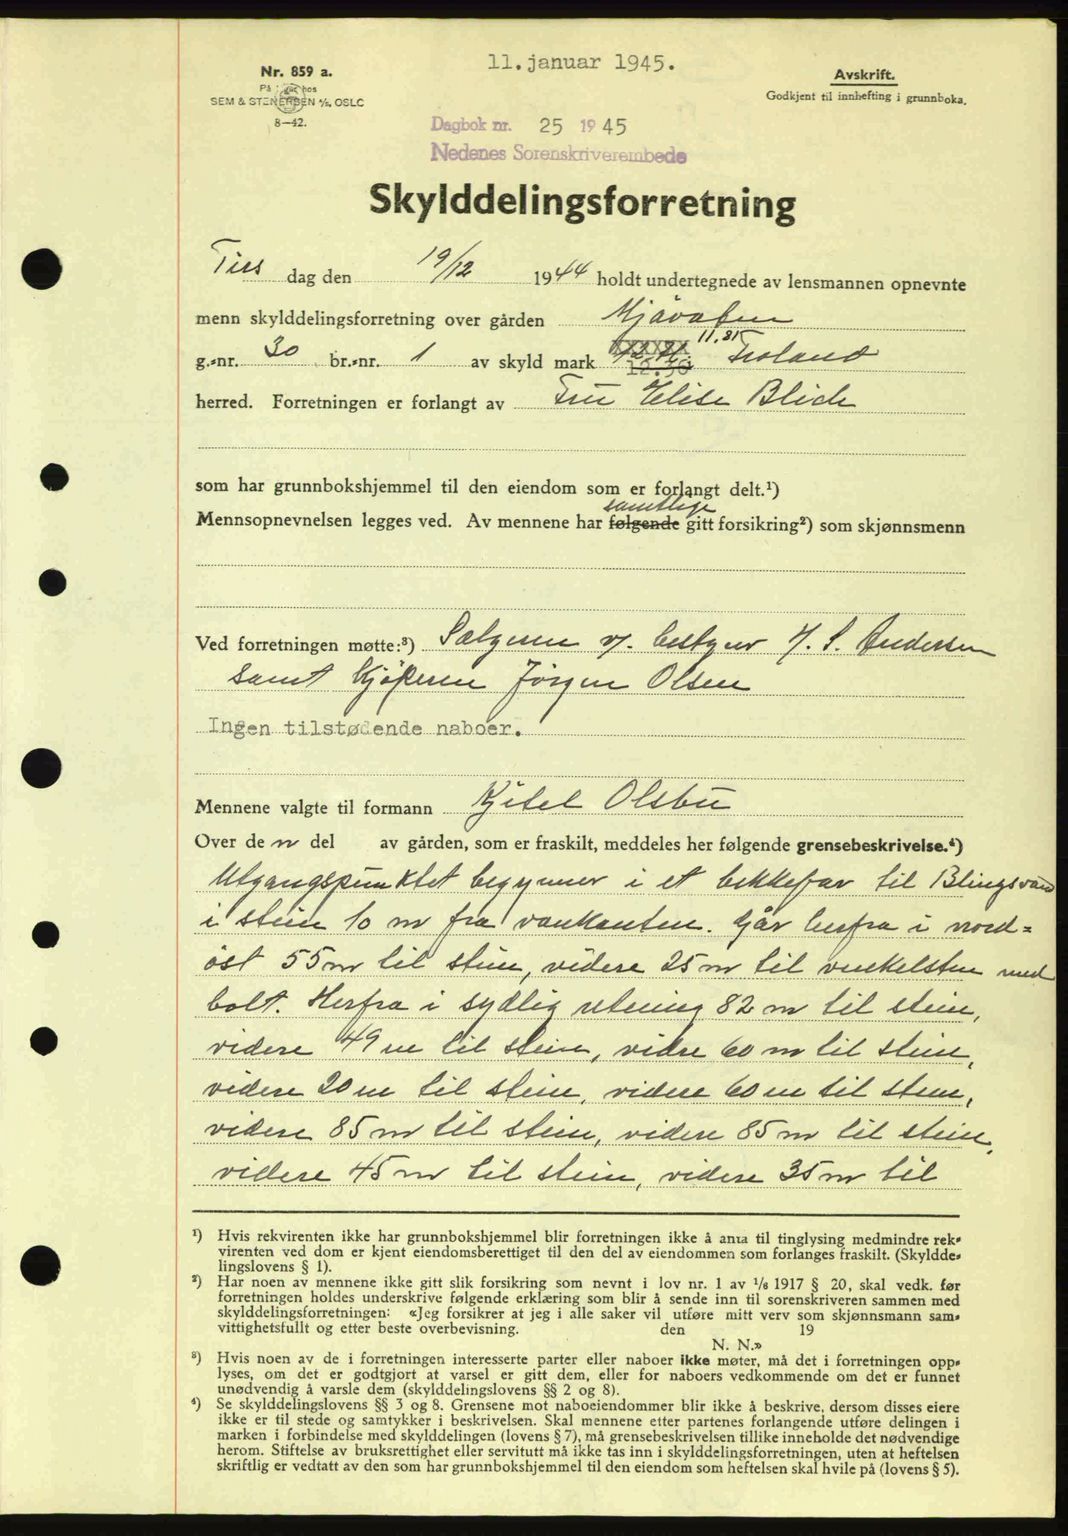 11. januar 1945.
Nr. 859 a.
SEM & STENERSEN A/S, OSLO
8—42.
Avskrift.
Godkjent til innhefting i grunnboka.
Dagbok nr. 25 1945
Nedenes Sorenskriverembede
Skylddelingsforretning
Tirs dag den 19/12 1944 holdt undertegnede av lensmannen opnevnte
menn skylddelingsforretning over gården Mjåvatn
11.81
g.-nr. 30 br.-nr. 1 av skyld mark Froland
12.50
herred. Forretningen er forlangt av Fru Elise Blich
som har grunnbokshjemmel til den eiendom som er forlangt delt.¹)
samtlige
Mennsopnevnelsen legges ved. Av mennene har følgende gitt forsikring²) som skjønnsmenn
Ved forretningen møtte:³) Sælgeren v/. bestyrer J. S. Andersen
samt kjøperen Jörgen Olsen
Ingen tilstødende naboer.
Mennene valgte til formann Kjetel Olsbu
Over de n del av gården, som er fraskilt, meddeles her følgende grensebeskrivelse.⁴)
Utgangspunktet begynner i et bekkefar til Blingsvand
i stein 10 m fra vankanten. Går herfra i nord=
öst 55 m til stein, videre 25 m til vinkelsten med
bolt. Herfra i sydlig retning 82 m til stein,
videre 49 m til stein, vidre 60 m til stein,
videre 20 m til stein, videre 60 m til stein,
videre 85 m til stein, videre 85 m til stein,
videre 45 m til stein, videre 35 m til
¹) Hvis rekvirenten ikke har grunnbokshjemmel blir forretningen ikke å anta til tinglysing medmindre rek-
virenten ved dom er kjent eiendomsberettiget til den del av eiendommen som forlanges fraskilt. (Skyldde-
lingslovens § 1).
²) Har noen av mennene ikke gitt slik forsikring som nevnt i lov nr. 1 av 1/6 1917 § 20, skal vedk. før
forretningen holdes underskrive følgende erklæring som blir å sende inn til sorenskriveren sammen med
skylddelingsforretningen: «Jeg forsikrer at jeg i alle saker vil utføre mitt verv som skjønnsmann sam-
vittighetsfullt og etter beste overbevisning. den 19
N. N.»
³) Hvis noen av de i forretningen interesserte parter eller naboer ikke møter, må det i forretningen opp-
lyses, om det er godtgjort at varsel er gitt dem, eller for naboers vedkommende om det er funnet
unødvendig å varsle dem (skylddelingslovens §§ 2 og 8).
⁴) Se skylddelingslovens §§ 3 og 8. Grensene mot naboeiendommer blir ikke å beskrive, dersom disses eiere
ikke er til stede og samtykker i beskrivelsen. Skal mennene etter partenes forlangende utføre delingen i
marken i forbindelse med skylddelingen (lovens § 7), må grensebeskrivelsen tillike inneholde det nødvendige
herom. Stiftelse av bruksrettighet eller servitutt må ikke tas inn i skylddelingsforretningen, uten at heftelsen
skriftlig er vedtatt av den som har grunnbokshjemmel til den eiendom som heftelsen skal hvile på (lovens § 5).